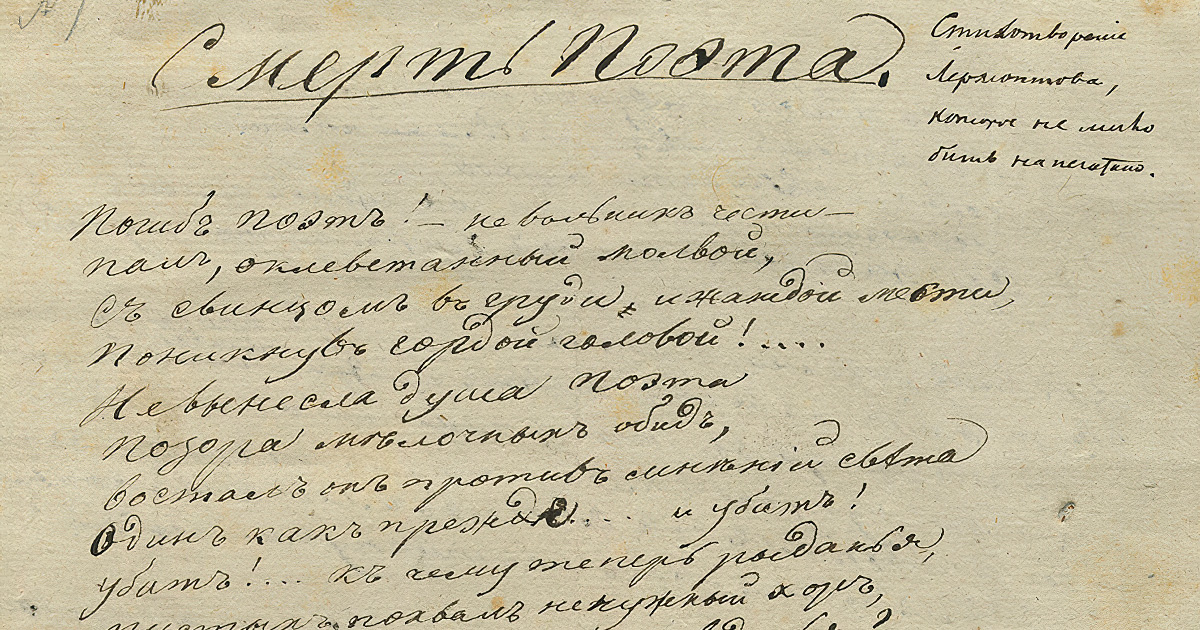 Смерть Поэта.
Стихотвореніе
Лермонтова,
которое не могло
быть напечатано.
Погибъ поэтъ! — невольникъ чести —
палъ, оклеветанный молвой,
Съ свинцомъ въ груди, и жаждой мести,
Поникнувъ гордой головой!....
Невынесла душа поэта
позора мѣлочныхъ обидъ,
возсталъ онъ противъ мнѣній свѣта
Одинъ какъ прежде.... и убитъ!
убитъ!.... къ чему теперь рыданья,
пустыхъ похвалъ ненужный хоръ,